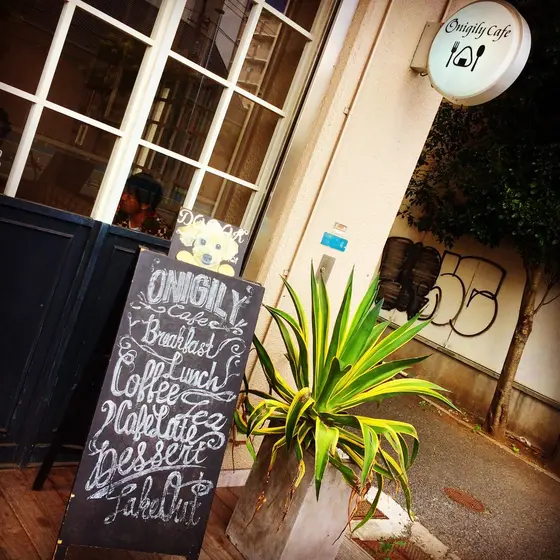 Onigily Cafe
ONIGILY
Cafe
Breakfast
Lunch
Coffee
Tea
Cafe Late
Dessert
Take Out